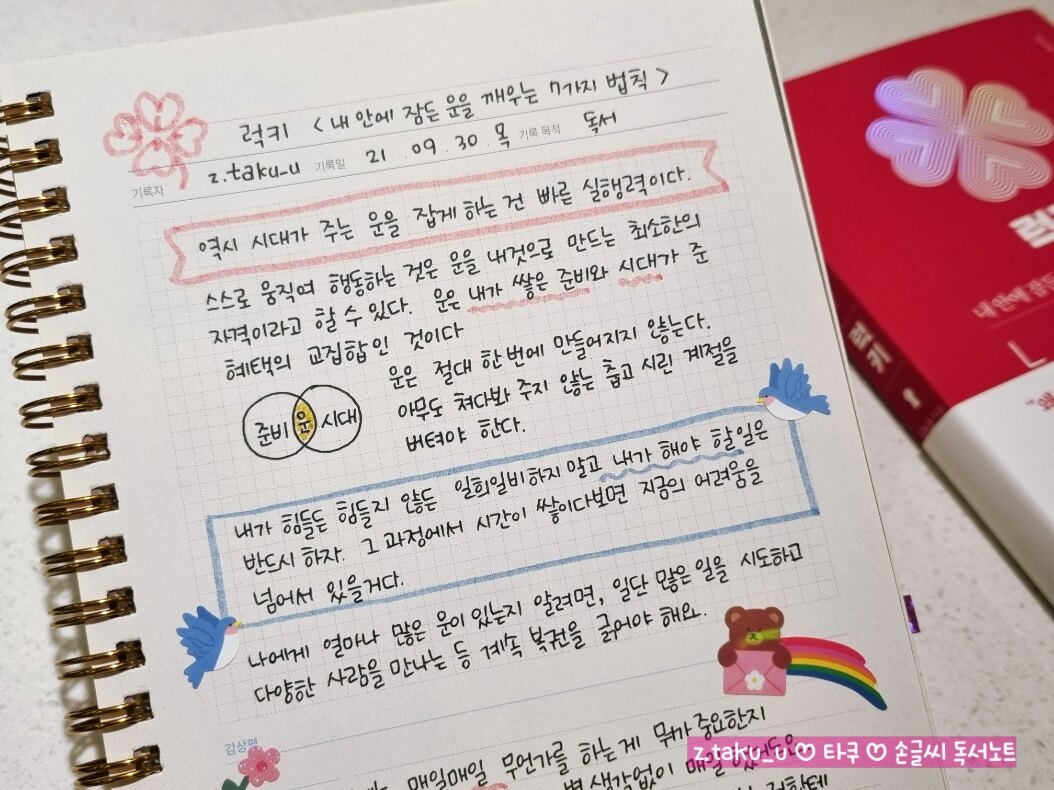 럭키 < 내 안에 잠든 운을 깨우는 7가지 법칙 >
기록자 z.taku_u 기록일 21 . 09 . 30 . 목 기록 목적 독서
역시 시대가 주는 운을 잡게 하는 건 빠른 실행력이다.
스스로 움직여 행동하는 것은 운을 내것으로 만드는 최소한의
자격이라고 할 수 있다. 운은 내가 쌓은 준비와 시대가 준
혜택의 교집합인 것이다
운은 절대 한번에 만들어지지 않는다.
아무도 쳐다봐 주지 않는 춥고 시린 계절을
버텨야 한다.
준비 운 시대
내가 힘들든 힘들지 않든 일희일비하지 말고 내가 해야 할 일은
반드시 하자. 그 과정에서 시간이 쌓이다보면 지금의 어려움을
넘어서 있을거다.
나에게 얼마나 많은 운이 있는지 알려면, 일단 많은 일을 시도하고
다양한 사람을 만나는 등 계속 복권을 긁어야 해요.
감상평
매일매일 무언가를 하는게 뭐가 중요한지
별 생각없이 매일
럭키
내 안에 잠든
L
z.taku_u ♡ 타쿠 ♡ 손글씨 독서노트